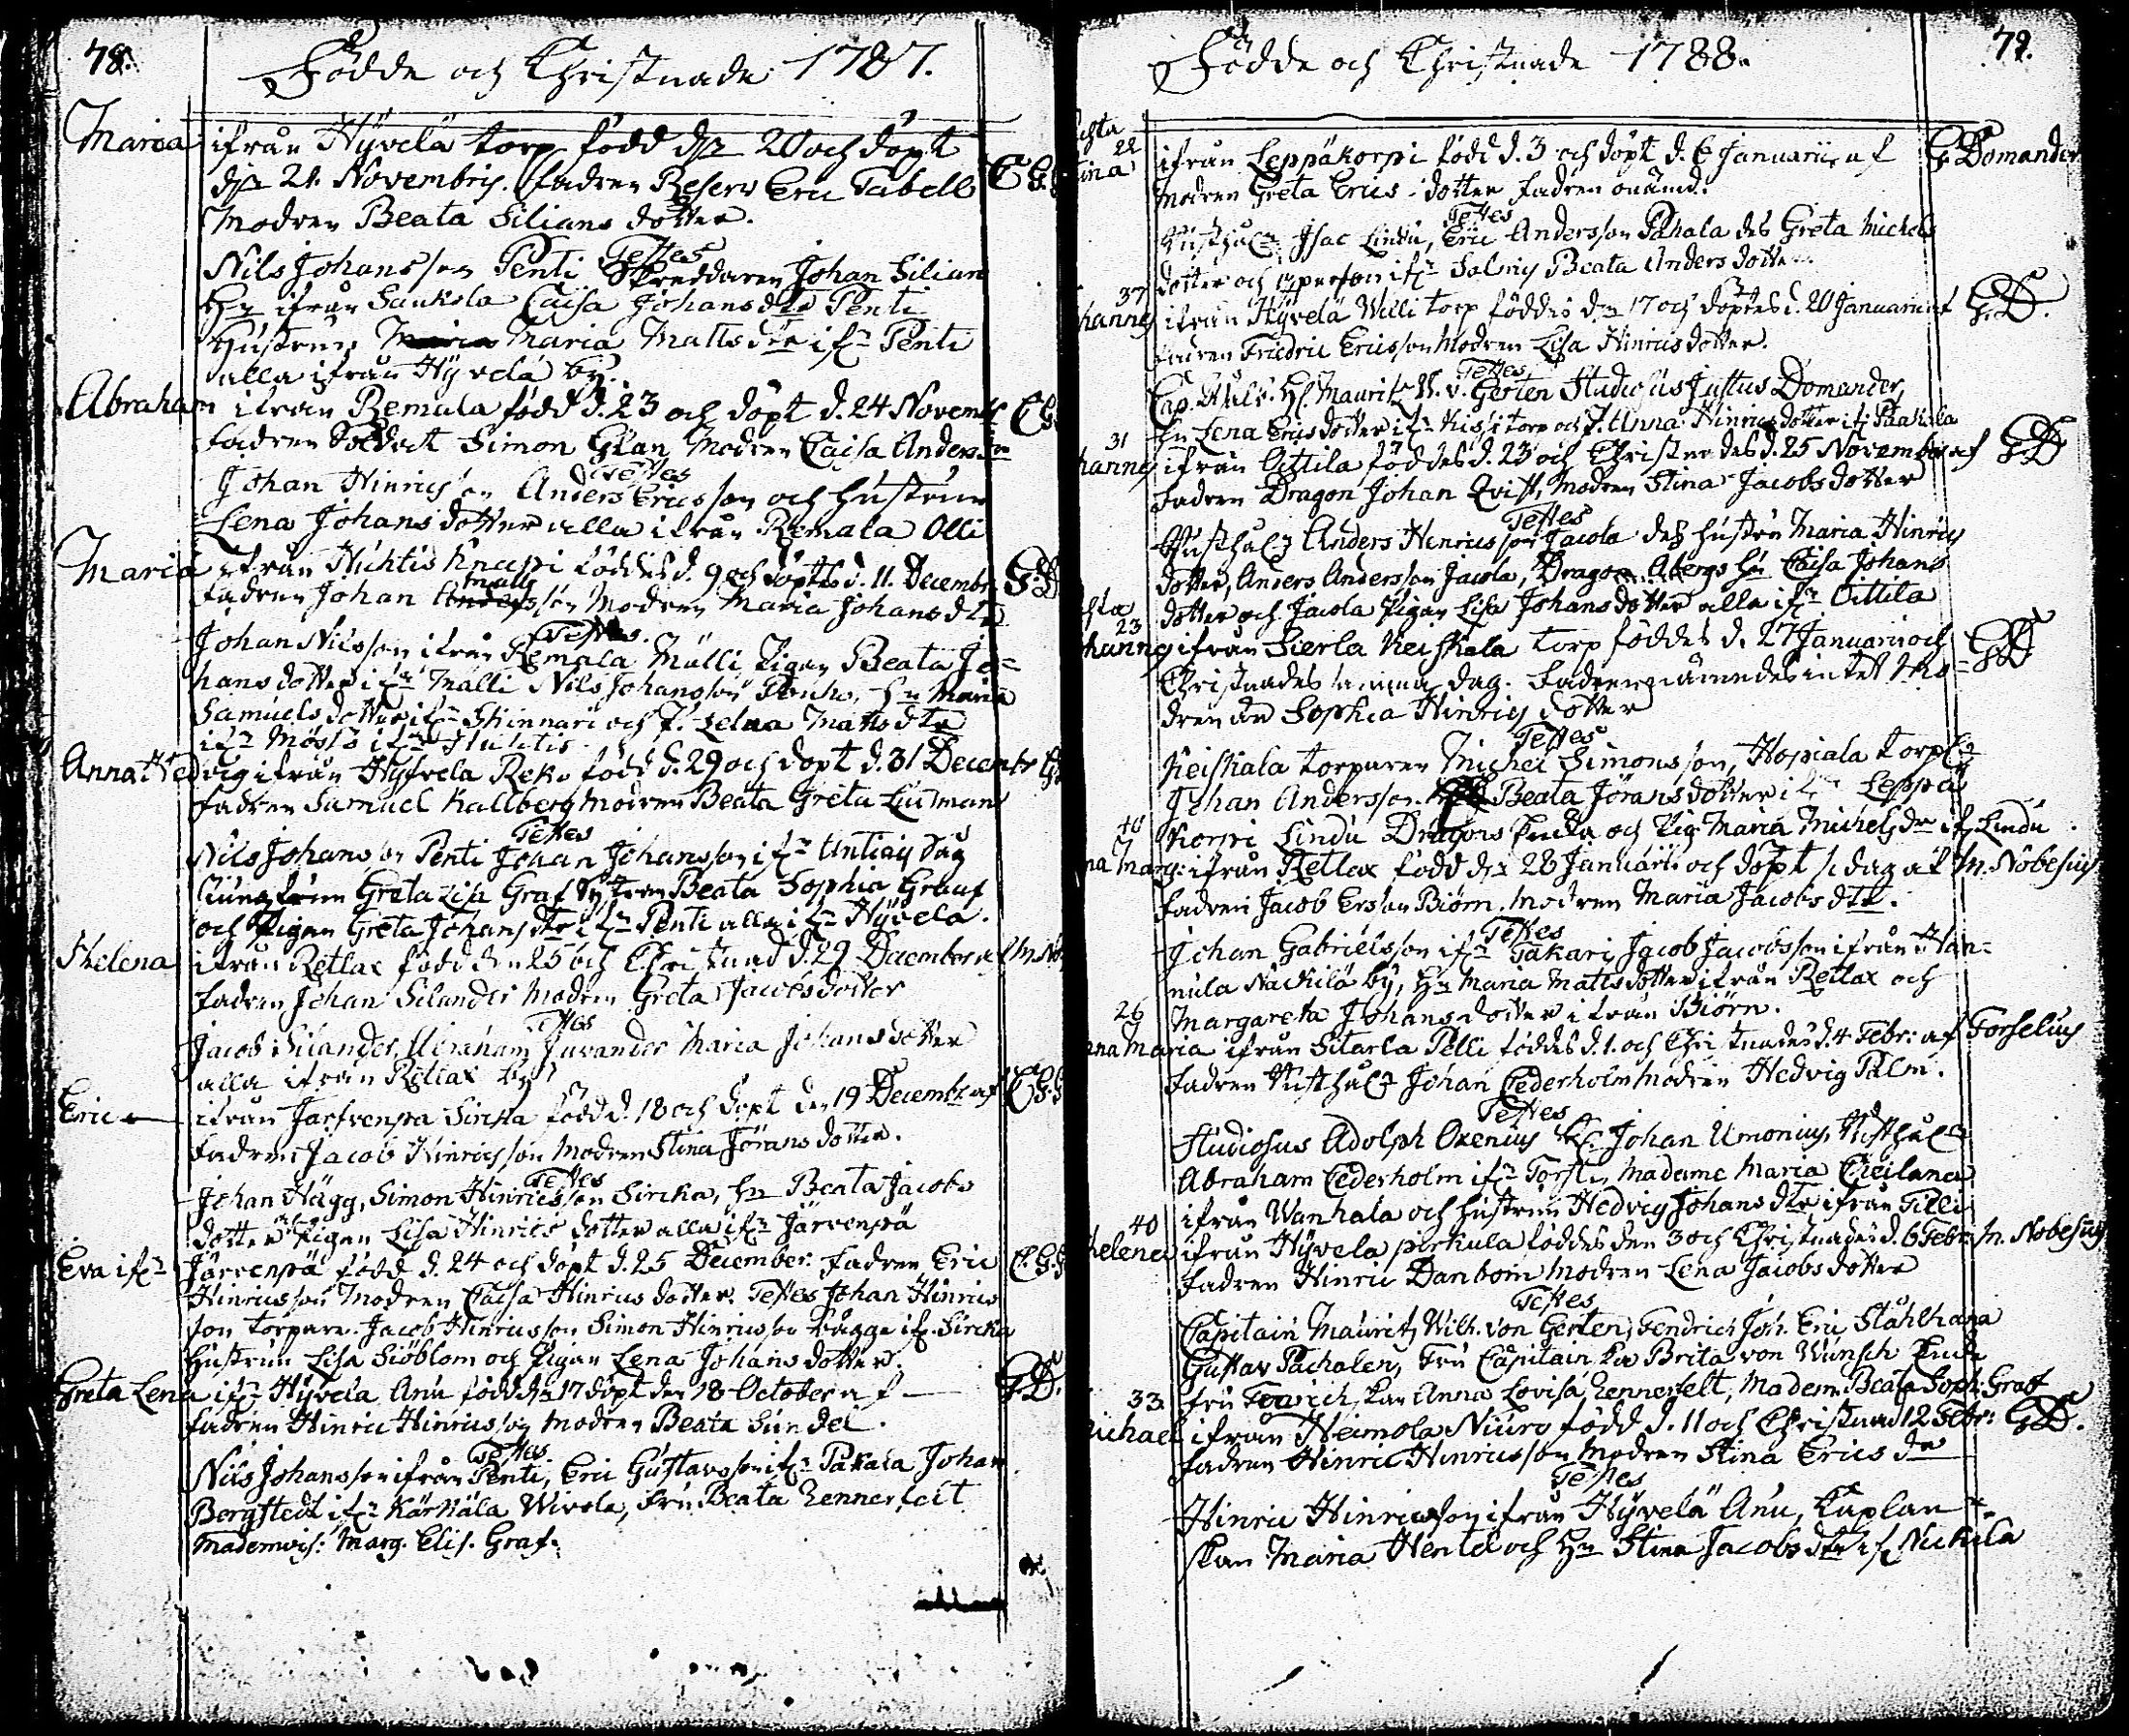 78.
Födde och Christnade 1787.
Maria ifrån Hyvelä torp född dn 20 och döpt
dn 21. Novembris. fadren Reserv Eric Tabell E G.
Modren Beata Silians dotter.
Testes
Nils Johansson Penti Skreddaren Johan Silian
Hn ifrån Saukola Caisa Johans dtr Penti
Hustrun Maria Matts dtr ifn Penti
alla ifrån Hyvelä by.
Abraham ifrån Remala född d. 23 och döpt d. 24 Novembr
fadren Soldat Simon Glan Modren Caisa Anders dr
Testes
Johan Hinricsson Anders Ericsson och hustrun
Lena Johans dotter alla ifrån Remala Olli
Maria ifrån Huhtis Knappi föddes d. 9 och döptes d. 11. Decembr G. D
fadren Johan Mattsson Modren Maria Johans dtr
Testes.
Johan Nilsson ifrån Remala Mälli Pigan Beata Jo=
hans dotter ifn Mälli Nils Johansson Hn Maria
Samuels dotter ifn Skinnari och P. Lena Matts dtr
ifn Huhtis
Anna Hedvig ifrån Hyfvela Reko född d. 29 och döpt d. 31 Decembr
fadren Samuel Kallberg modren Beata Greta Lutman
Testes
Nils Johansson Penti Johan Johansson ifn
Greta Lisa Graf Beata Sophia Graaf
och Pigan Greta Johans dtr ifn Penti alla ifn Hyvelä.
Helena ifrån Retlax född den 25 och Christnad d. 29 December af M. No
fadren Johan Silander Modren Greta Jacobsdotter
Testes
Jacob Silander, Abraham Juvander Maria Johansdotter
alla ifrån Retlax by
Eric ifrån Jarfvenpa Sirkka född d. 18 och döpt den 19 Decembr af
fadren Jacob Hinricsson Modren Stina Jörans dotter.
Testes
Johan Hägg, Simon Hinricsson Sircka, Hn Beata Jacobs
dotter Pigan Lisa Hinrics dotter alla ifn Järvenpä
Eva ifn Järvenpä född d. 24 och döpt d. 25 December. fadren Eric E. G.
Hinricsson Modren Caisa Hinrics dotter. Testes Johan Hinrics
son torpare. Jacob Hinricsson Simon Hinricsson ifr. Sircka
Hustrun Lisa Siöblom och Pigan Lena Johans dotter.
Greta Lena ifn Hyvelä Anu född dn 17 döpt den 18 October af G. D.
fadren Hinric Hinricsson modren Beata Sundel.
Testes
Nils Johansson ifrån Penti, Eric Gustavsson ifn Pakala Johan
Bergstedt ifn Kärkälä Wivola, Fru Beata Zennerfelt
Mademois: Marg. Elis. Graf.
79.
Födde och Christnade 1788.
22
ifrån Leppäkorpi född d. 3 och döpt d. 6 Januarii af G. Domander.
Modren Greta Erics dotter fadren onämd.
Testes
Rusthåln Isac Lindu, Eric Andersson Pahala des Greta Michels
dotter och person ifn Salmis Beata Anders dotter.
37
hannes ifrån Hyvelä Willi torp föddes dn 17 och döptes d. 20 Januarii af G. D.
fadren Friedric Ericsson Modren Lisa Hinrics dotter.
Testes
Cap. Hl. Mauritz W. v. Gerten Studiosus Justus Domander,
Hn Lena Erics dotter ifn torp och P. Anna Hinrics dotter
31
hannes ifrån Oittila föddes d. 23 och Christnedes d. 25 November af G. D
fadren Dragon Johan Qvist, Modren Stina Jacobs dotter
Testes
Rusthåln Anders Henricsson Jacola des hustru Maria Hinrics
dotter, Anders Andersson Jacola, Dragon Abergs Hn Caisa Johans
dotter och Jacola Pigan Lisa Johans dotter alla ifn Oittila
23
hannes ifrån Sierla Keiskala torp föddes d. 27 Januarii och G D
Christnades samma dag. fadren nämndes intet Mo=
dren Sophia Hinrics dotter
Testes
Keiskala torparen Michel Simonsson, Hopiala
Johan Andersson Beata Jörans dotter ifn Leppä
korpi Lindu Dragons Encka och Pig. Maria Michels dr if Lindu
40
na Marg: ifrån Retlax född dn 28 Januarii och döpt s. dag af M. Nobesius
fadren Jacob Ersson Biörn. Modren Maria Jacobs dtr.
Testes
Johan Gabrielsson ifn Takari Jacob Jacobsson ifrån Han=
nula Näckilä by, Hn Maria Matts dotter ifrån Retlax och
Margareta Johans dotter ifrån Biörn.
26
nna Maria ifrån Sitarla Pelli föddes d. 1. och Christnades d. 4 Febr: af Forselius
fadren Rusthåln Johan Cederholm modren Hedvig Palm.
Testes
Studiosus Adolph Oxenius Johan Umonius, Rusthåln
Abraham Cederholm ifn Torsti, Madame Maria
ifrån Wanhala och hustrun Hedvig Johans dtr ifrån Tilli
40
helena ifrån Hyvela perkula föddes den 3 och Christnades d. 6 Febr: M. Nobesius
fadren Hinric Danbom Modren Lena Jacobs dotter
Testes
Capitain Mauritz Wilh. von Gerten, Fendrich Joh. Eric Stålhana
Gustav Pachalen, Fru Capitainskan Brita von Wunsch Encka
33
Fru Fenrichskan Anna Lovisa Zennerfelt, Madem. Beata Soph. Graf
Michael ifrån Heimola Niuro född d. 11 och Christnad 12 Febr: G. D.
fadren Hinric Hinricsson Modren Stina Erics dr
Testes
Hinric Hinricsson ifrån Hyvelä Anu, Caplan
skan Maria Hentel och Hn Stina Jacobs dtr if Nickilä